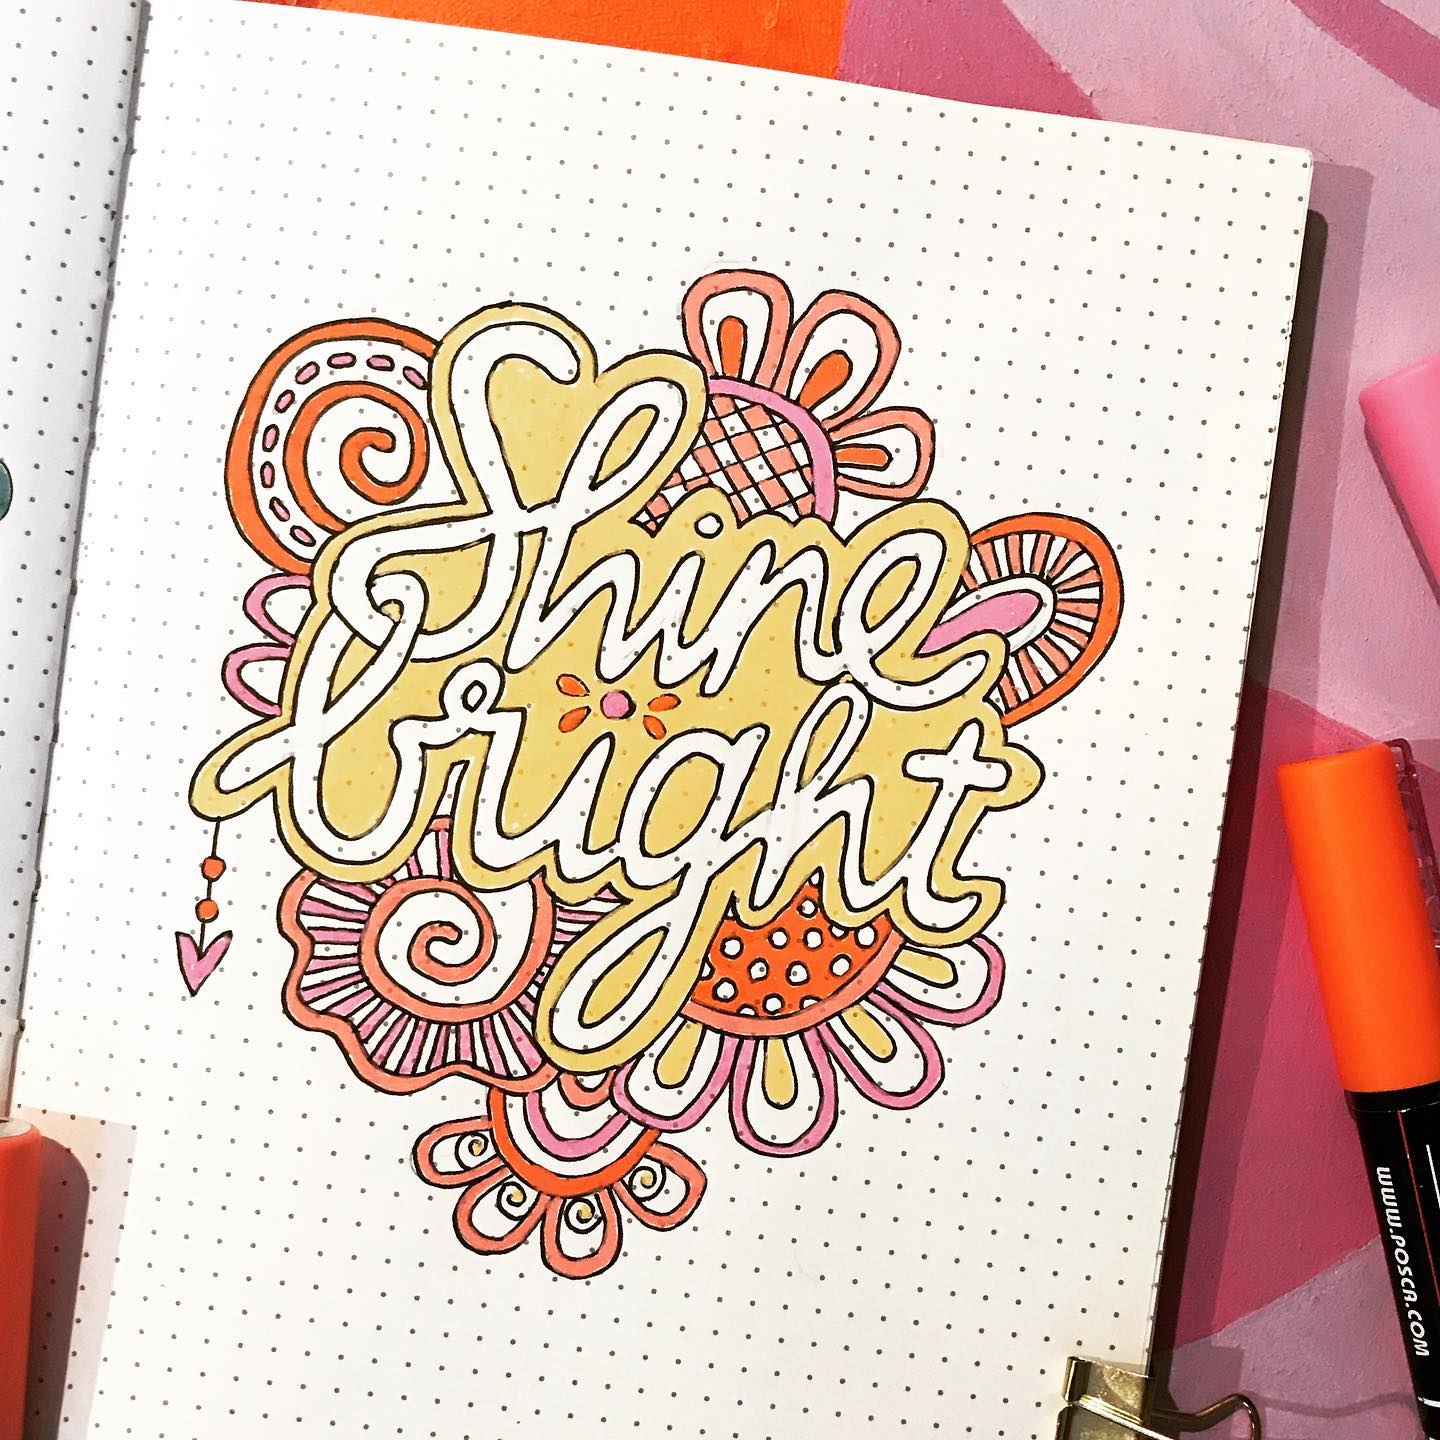 Shine
bright
WWW.POSCA.COM